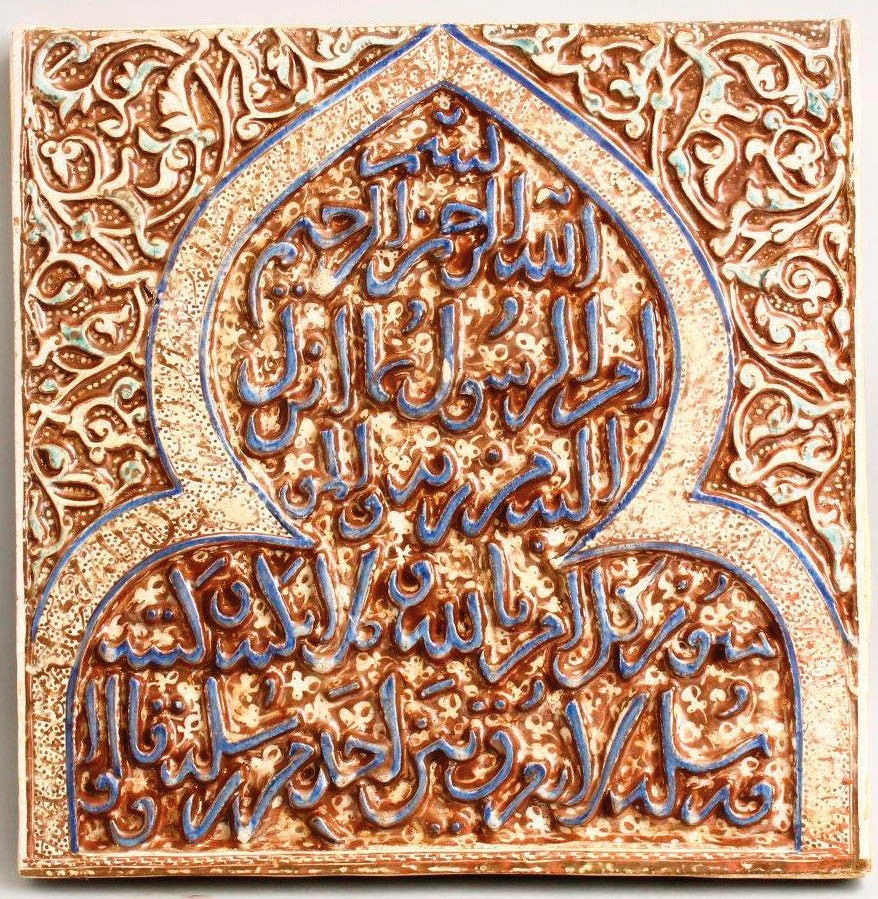 بسم
الله الرحمن الرحيم
امن الرسول بما انزل
اليه من ربه والمو
منون كل امن بالله وملائكته وكتبه
ورسله لا نفرق بين احد من رسله وقالوا